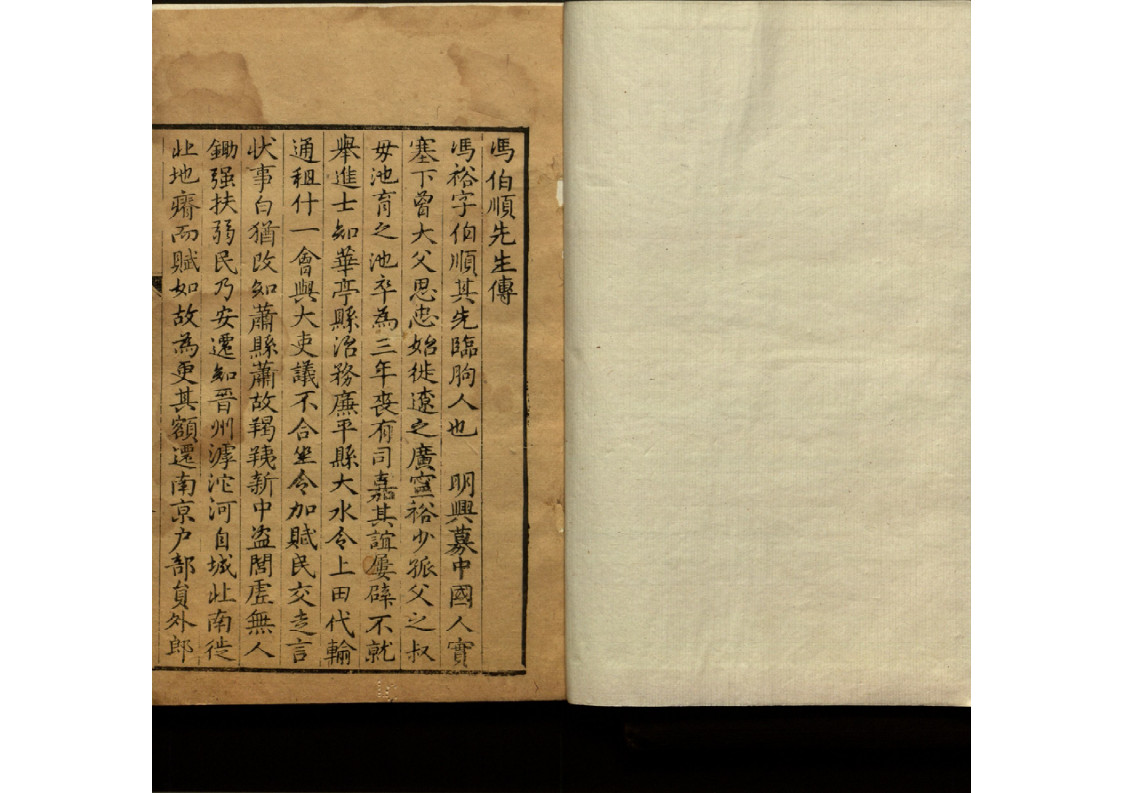 馮伯順先生傳
馮裕字伯順其先臨朐人也 明興募中國人實
塞下曾大父思忠始徙遼之廣寧裕少孤父之叔
毋池育之池卒為三年喪有司嘉其誼屢辟不就
舉進士知華亭縣治務廉平縣大水令上田代輸
通租什一會與大吏議不合坐令加賦民交走言
狀事白猶改知蕭縣蕭故羯羠新中盜閭虛無人
鋤强扶弱民乃安遷知晉州滹沱河自城北南徙
北地瘠而賦如故為更其額遷南京户部員外郎